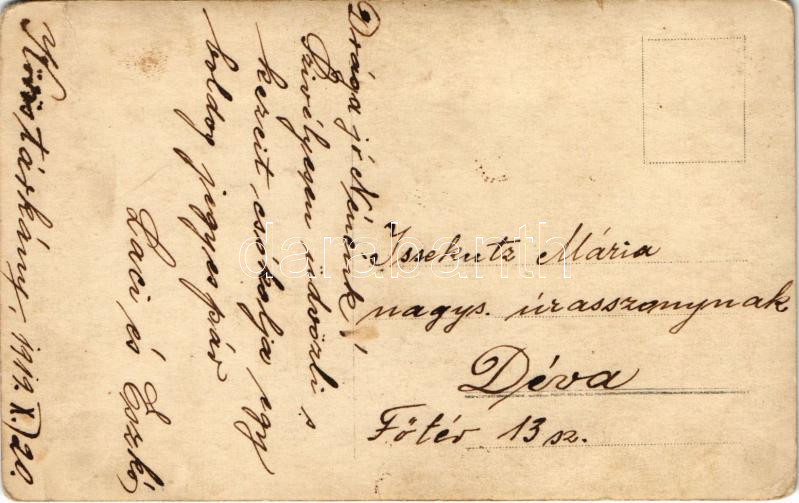 Drága jó Nénénk!
Szivélyesen üdvözli s
kezeit csókolja egy
boldog jegyes pár
Laci és Eszkó
Köröstárkány, 1919. X./20.
Issekutz Mária
nagys. úrasszonynak
Déva
Főtér 13 sz.
darabanth